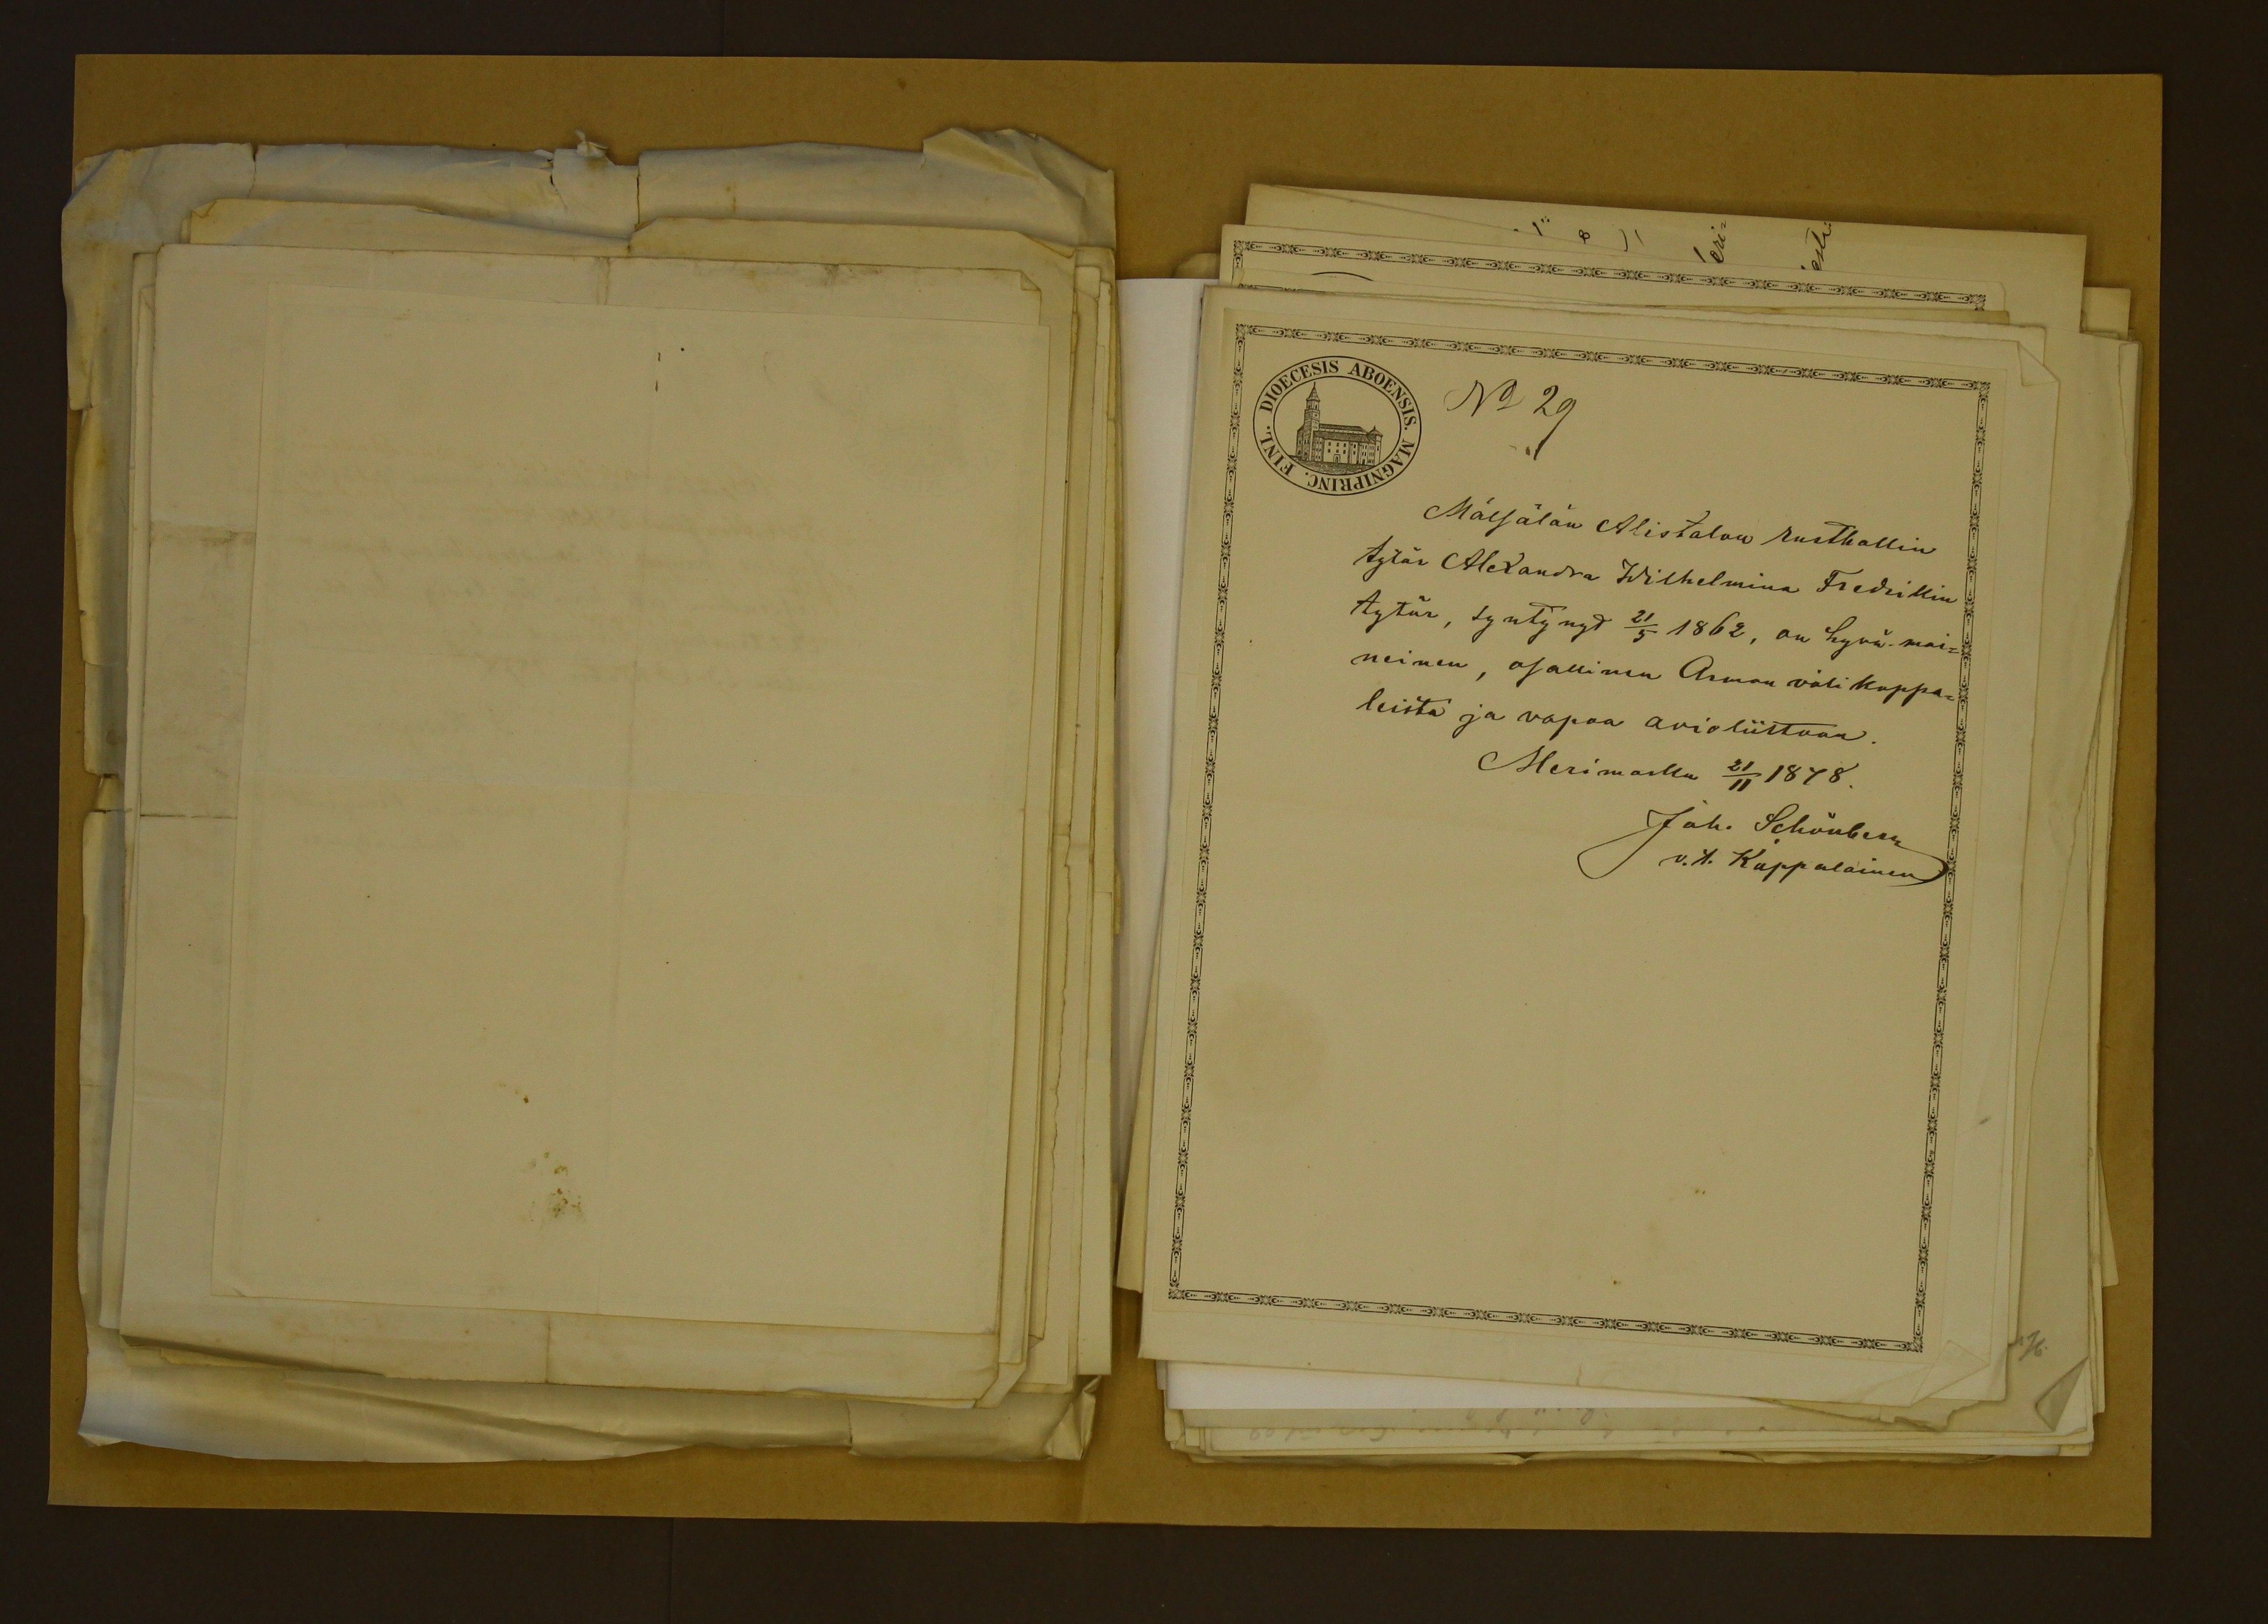 DIOECESIS ABOENSIS. MAGNIPRINC. FINL.
No 29
Mälsälän Alistalon rusthollin
tytär Alexandra Wilhelmina Fredrikin
tytär, syntynyt 21/5 1862, on hyvä-mai=
neinen, osallinen Armon välikappa=
leista ja vapaa avioliittoon.
Merimasku 21/11 1878.
Joh. Schönberg
v.t. Kappalainen